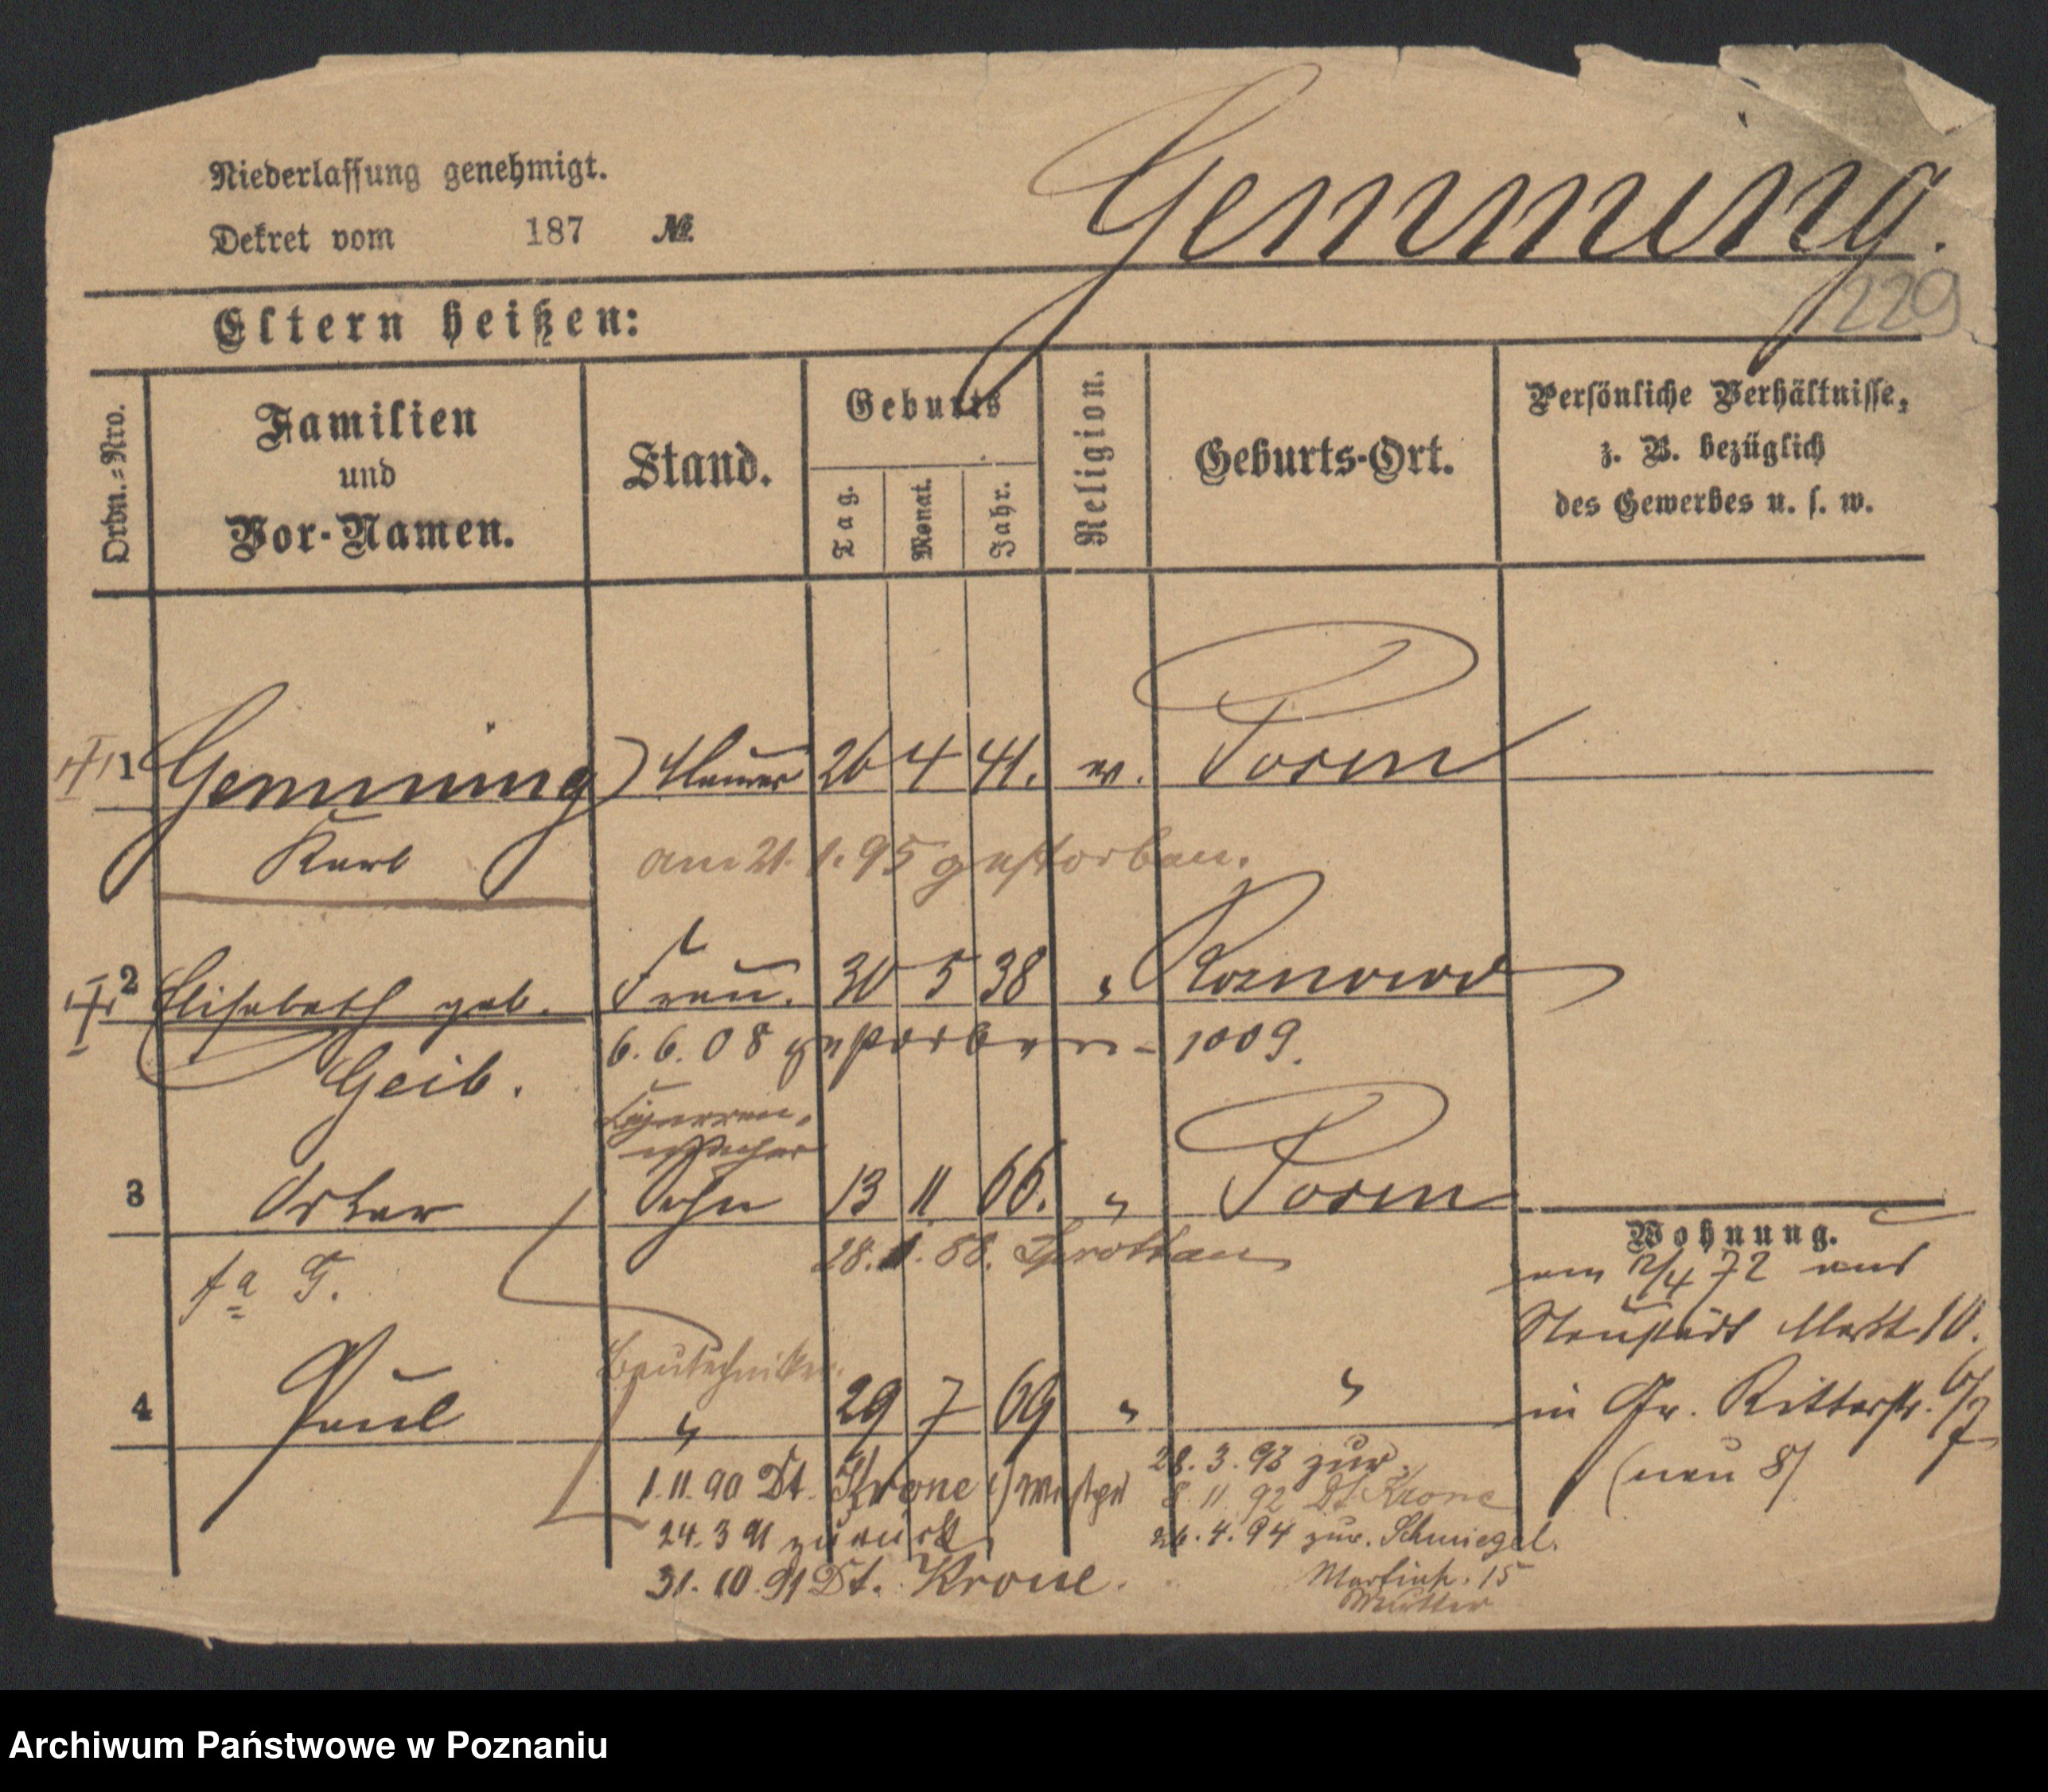 Niederlassung genehmigt.
Dekret vom 187 №
Gemming.
229
Eltern heißen:
Ordn.-Nro.
Familien
und
Vor-Namen.
Stand.
Geburts
Tag.
Monat.
Jahr.
Religion.
Geburts-Ort.
Persönliche Verhältnisse,
z. B. bezüglich
des Gewerbes u. s. w.
1 Gemming 26 4 41. ev. Posen
Karl
am 21. 1. 95 gestorben.
2 Elisabeth geb. Frau. 30 5 38 "
Geib.
6. 6. 08 gestorben - 1009.
Cigarren-
macher
3 Oskar Sohn 13 11 66. " Posen
28. 1. 88. Sprottau
fa G.
Bautechniker.
4 Paul " 29 7 69 " "
Wohnung.
am 2/4 72 aus
Neustädt Markt 10.
in Gr. Ritterstr. 6/7
(neu 8)
1. 11. 90 Dt. Krone i/ Westpr
24. 3 91 zurück
31. 10. 91 Dt. Krone.
28. 3. 92 zur.
8. 11. 92 Dt Krone
26. 4. 94 zur. Schmiegel.
Martinstr. 15
Mutter
Archiwum Państwowe w Poznaniu